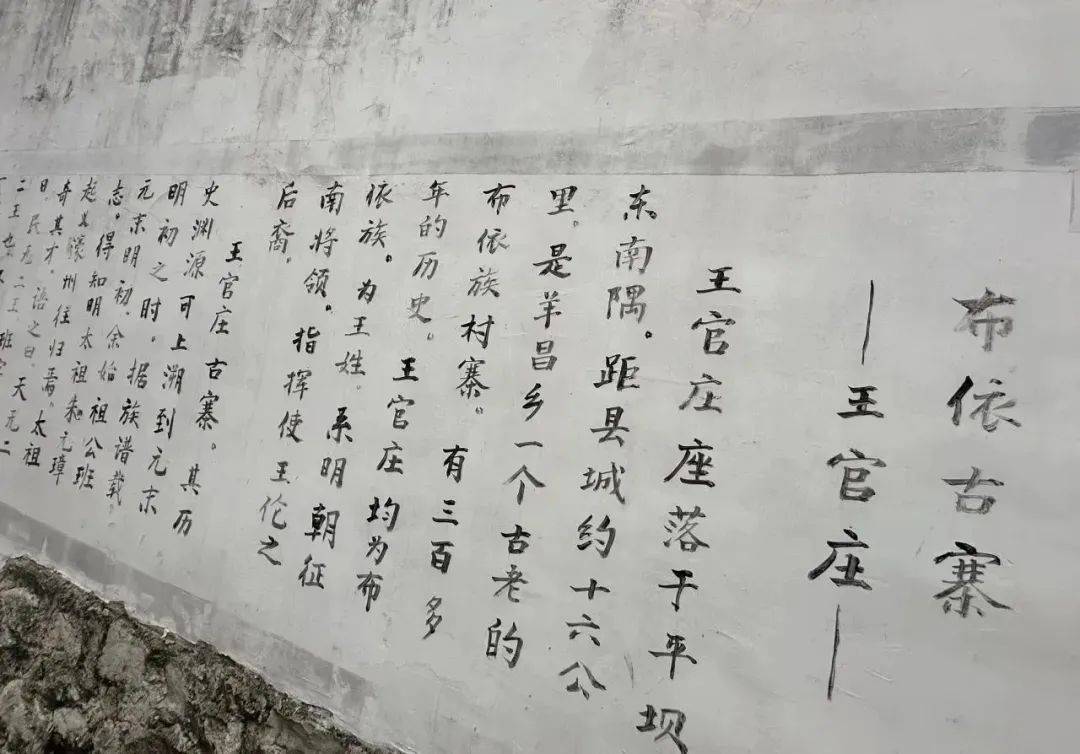 布依古寨
——王官庄——
王官庄座落于平坝
东南隅。距县城约十六公
里。是羊昌乡一个古老的
布依族村寨。有三百多
年的历史。王官庄均为布
依族。为王姓。系明朝征
南将领。指挥使王伦之
后裔。
王官庄古寨。其历
史渊源可上溯到元末
明初之时。据族谱载。
元末明初。余始祖公班
志。得知明太祖朱元璋
起其濠州往归焉。太祖
奇其才。语之曰。天无二
日。民无二王。班
二王也